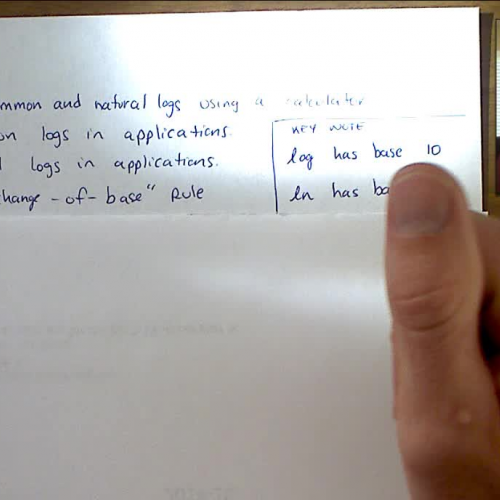 mmon and natural logs using a calculator
on logs in applications.
l logs in applications.
change-of-base" Rule
KEY NOTE
log has base 10
ln has ba